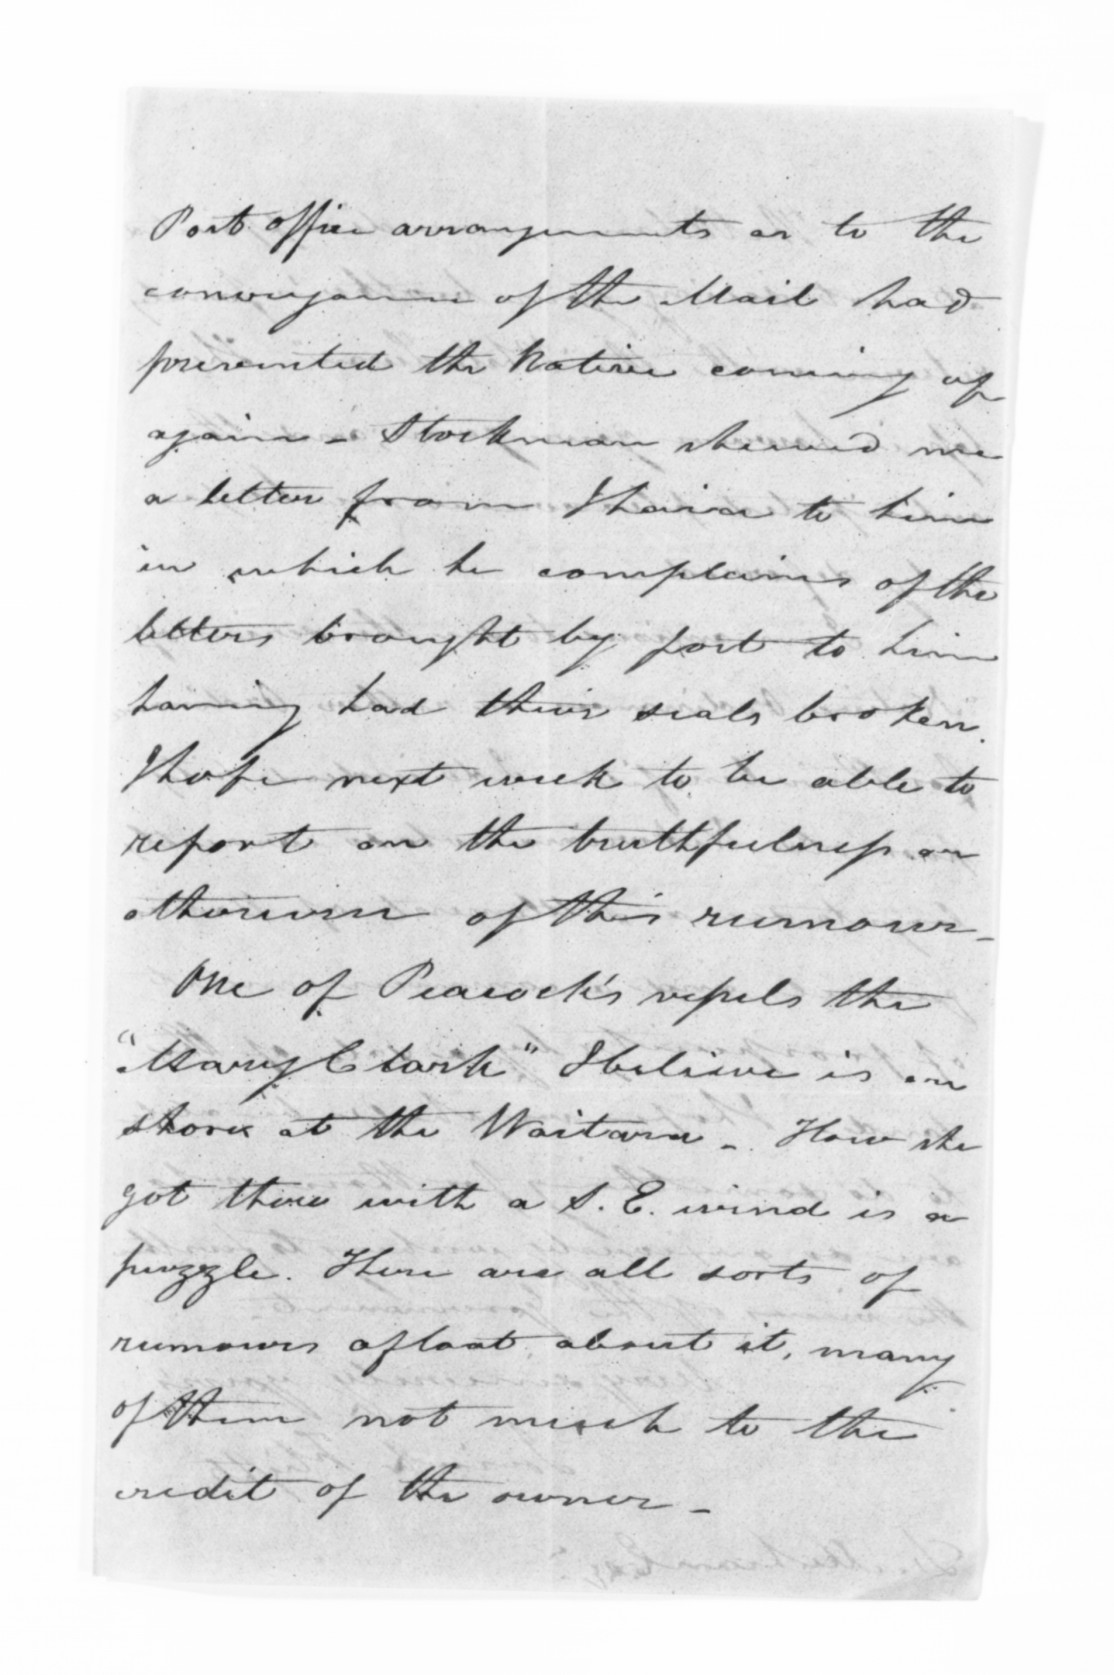 Post office arrangements as to the
conveyance of the Mail had
prevented the Natives coming up
again – Stockman shewed me
a letter from Ihaia to him
in which he complains of the
letters brought by post to him
having had their seals broken.
I hope next week to be able to
report on the truthfulness or
otherwise of this rumour –
One of Peacock's vessels the
"Mary Clark" I believe is on
shore at the Waitara –. How she
got there with a S. E. wind is a
puzzle. There are all sorts of
rumours afloat about it, many
of them not much to the
credit of the owner –